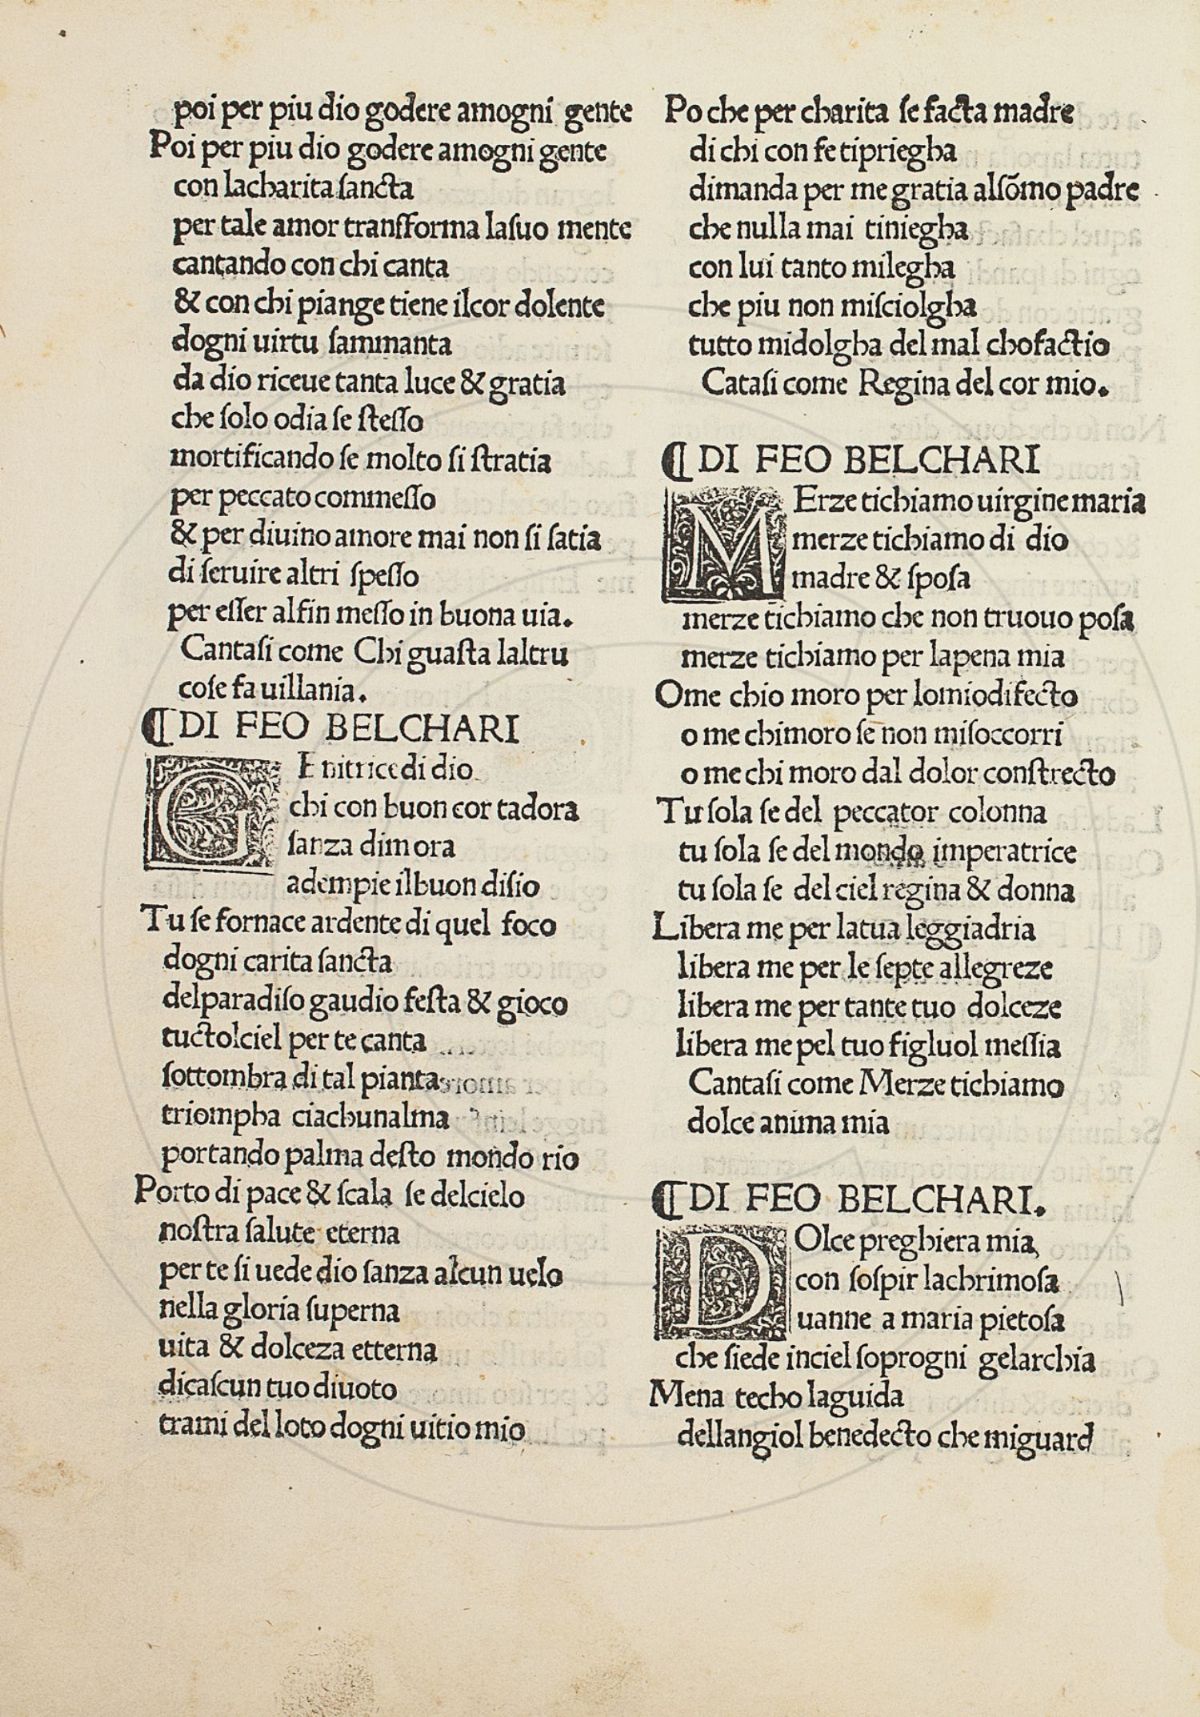 poi per piu dio godere amogni gente
Poi per piu dio godere amogni gente
con lacharita ſancta
per tale amor transſorma laſuo mente
cantando con chi canta
& con chi piange tiene ilcor dolente
dogni uirtu ſammanta
da dio riceue tanta luce & gratia
che ſolo odia ſe ſteſſo
mortificando ſe molto ſi ſtratia
per peccato commeſſo
& per diuino amore mai non ſi ſatia
di ſeruire altri ſpeſſo
per eſſer alfin meſſo in buona uia.
Cantaſi come Chi guaſta laltru
coſe fa uillania.
¶ DI FEO BELCHARI
GEnitrice di dio
chi con buon cor tadora
ſanza dimora
adempie ilbuon diſio
Tu ſe fornace ardente di quel foco
dogni carita ſancta
delparadiſo gaudio feſta & gioco
tuctolciel per te canta
ſottombra di tal pianta
triompha ciachunalma
portando palma deſto mondo rio
Porto di pace & ſcala ſe delcielo
noſtra ſalute eterna
per te ſi uede dio ſanza alcun uelo
nella gloria ſuperna
uita & dolceza etterna
dicaſcun tuo diuoto
trami del loto dogni uitio mio
Po che per charita ſe facta madre
di chi con fe tipriegha
dimanda per me gratia alſōmo padre
che nulla mai tiniegha
con lui tanto milegha
che piu non miſciolgha
tutto midolgha del mal chofactio
Cataſi come Regina del cor mio.
¶ DI FEO BELCHARI
MErze tichiamo uirgine maria
merze tichiamo di dio
madre & ſpoſa
merze tichiamo che non truouo poſa
merze tichiamo per lapena mia
Ome chio moro per lomiodifecto
o me chimoro ſe non miſoccorri
o me chi moro dal dolor conſtrecto
Tu ſola ſe del peccator colonna
tu ſola ſe del mondo imperatrice
tu ſola ſe del ciel regina & donna
Libera me per latua leggiadria
libera me per le ſepte allegreze
libera me per tante tuo dolceze
libera me pel tuo figluol meſſia
Cantaſi come Merze tichiamo
dolce anima mia
¶ DI FEO BELCHARI.
DOlce preghiera mia,
con ſoſpir lachrimoſa
uanne a maria pietoſa
che ſiede inciel ſoprogni gelarchia
Mena techo laguida
dellangiol benedecto che miguard